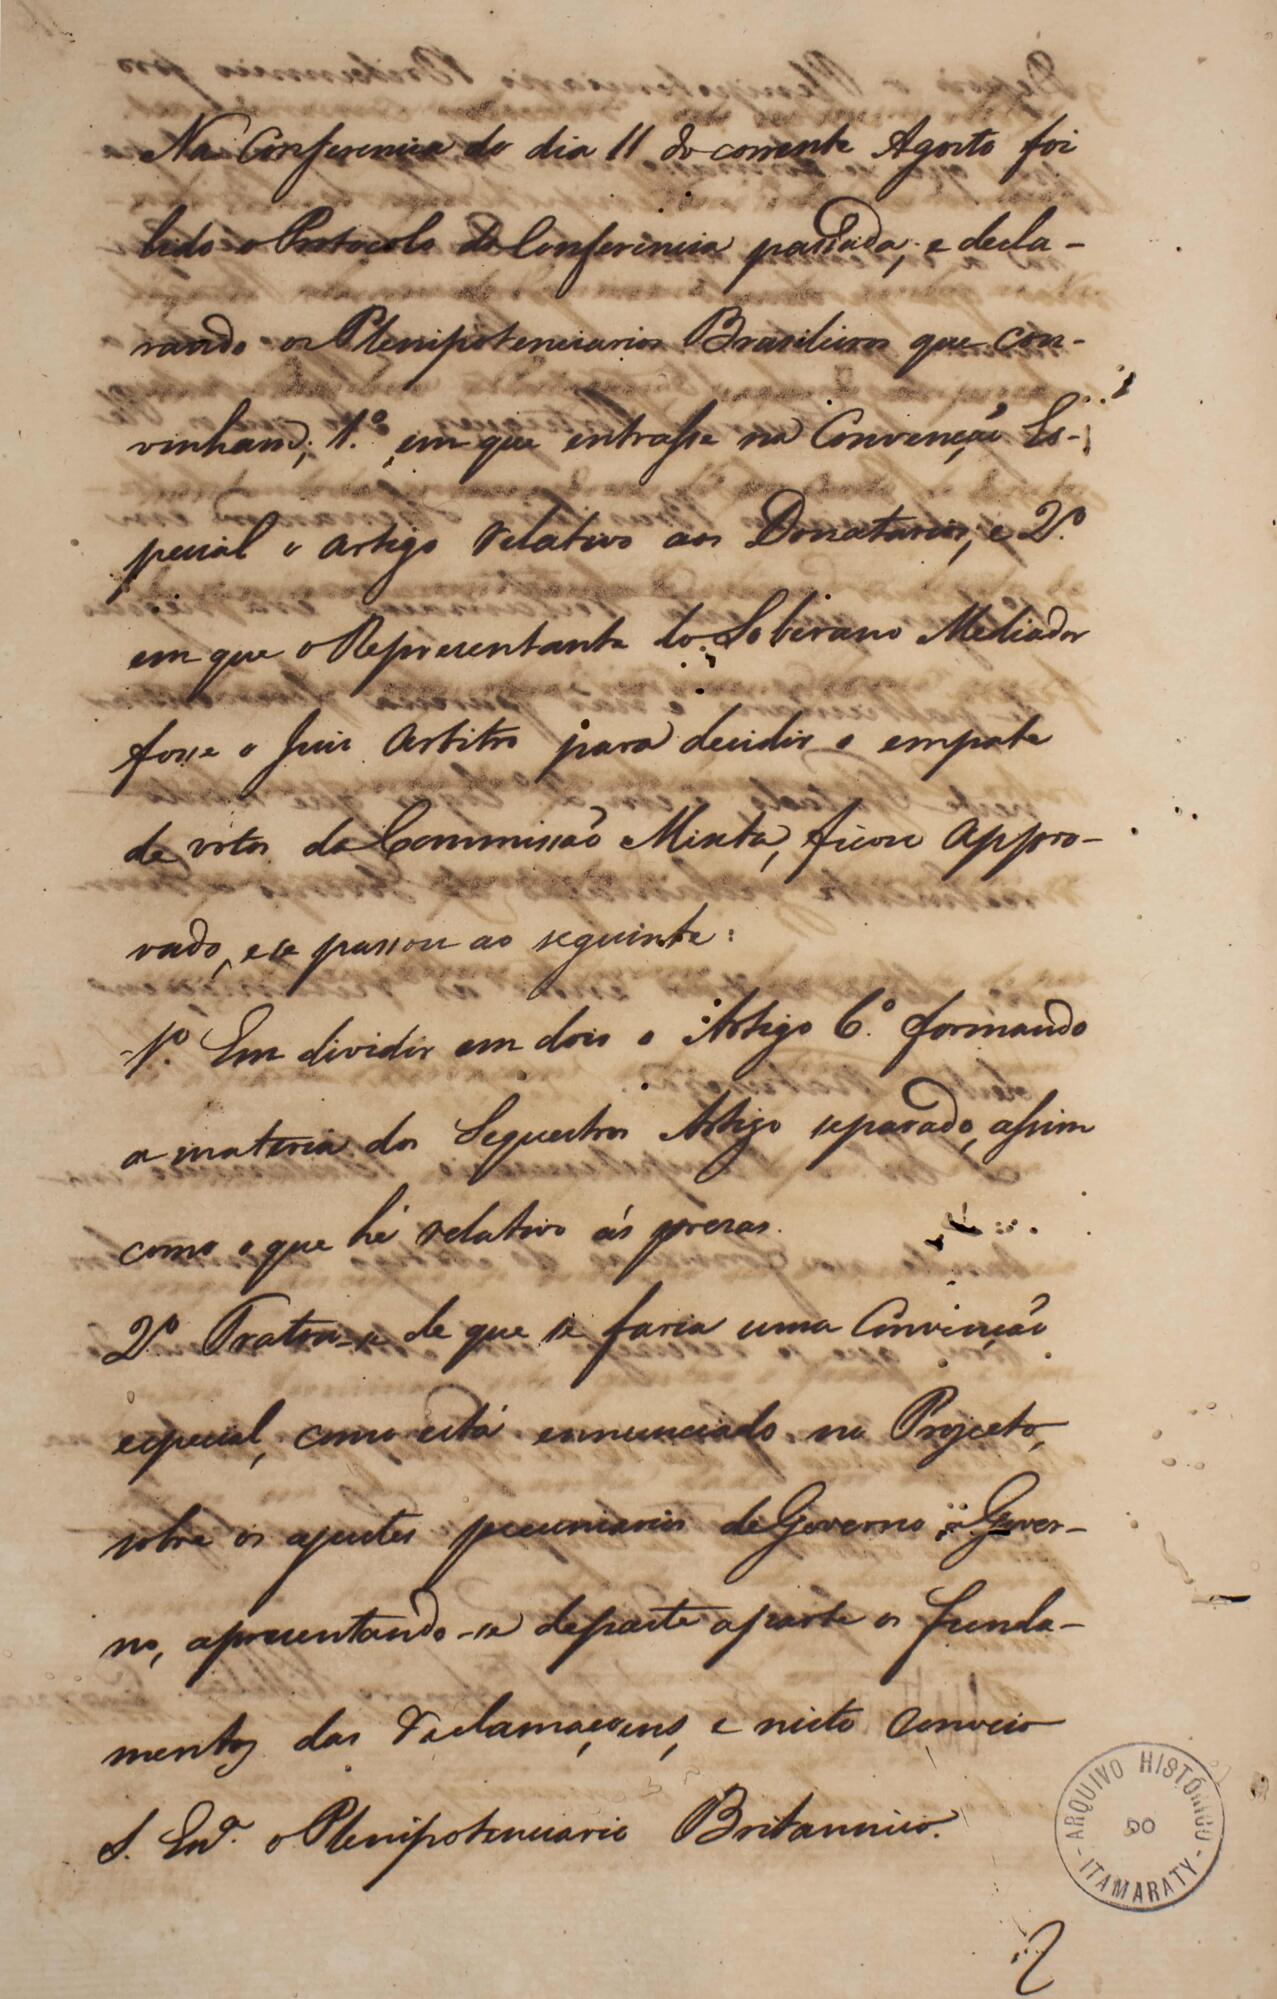 Na Conferencia do dia 11 do corrente Agosto foi
lido o Protocolo da Conferencia passada; e decla-
rando os Plenipotenciarios Brasileiros que con-
vinhaõ; 1.º em que entrasse na Convençaõ Es-
pecial o Artigo relativo aos Donatarios; e 2.º
em que o Representante do Soberano Mediador
fosse o Juiz Arbitro para decidir o empate
de votos da Commissaõ Mixta, ficou appro-
vado, e se passou ao seguinte:
1.º Em dividir em dois o Artigo 6.º formando
a materia dos Sequestros Artigo separado, assim
como o que hé relativo ás prezas.
2.º Tratou-se de que se faria uma Convençaõ
especial, como está ennunciado no Projecto,
sobre os ajustes pecuniarios de Governo a Gover-
no, apresentando-se de parte a parte os funda-
mentos das reclamaçoens, e nisto conveio
S. Ex.ª o Plenipotenciario Britannico.
ARQUIVO HISTÓRICO
DO
ITAMARATY
2